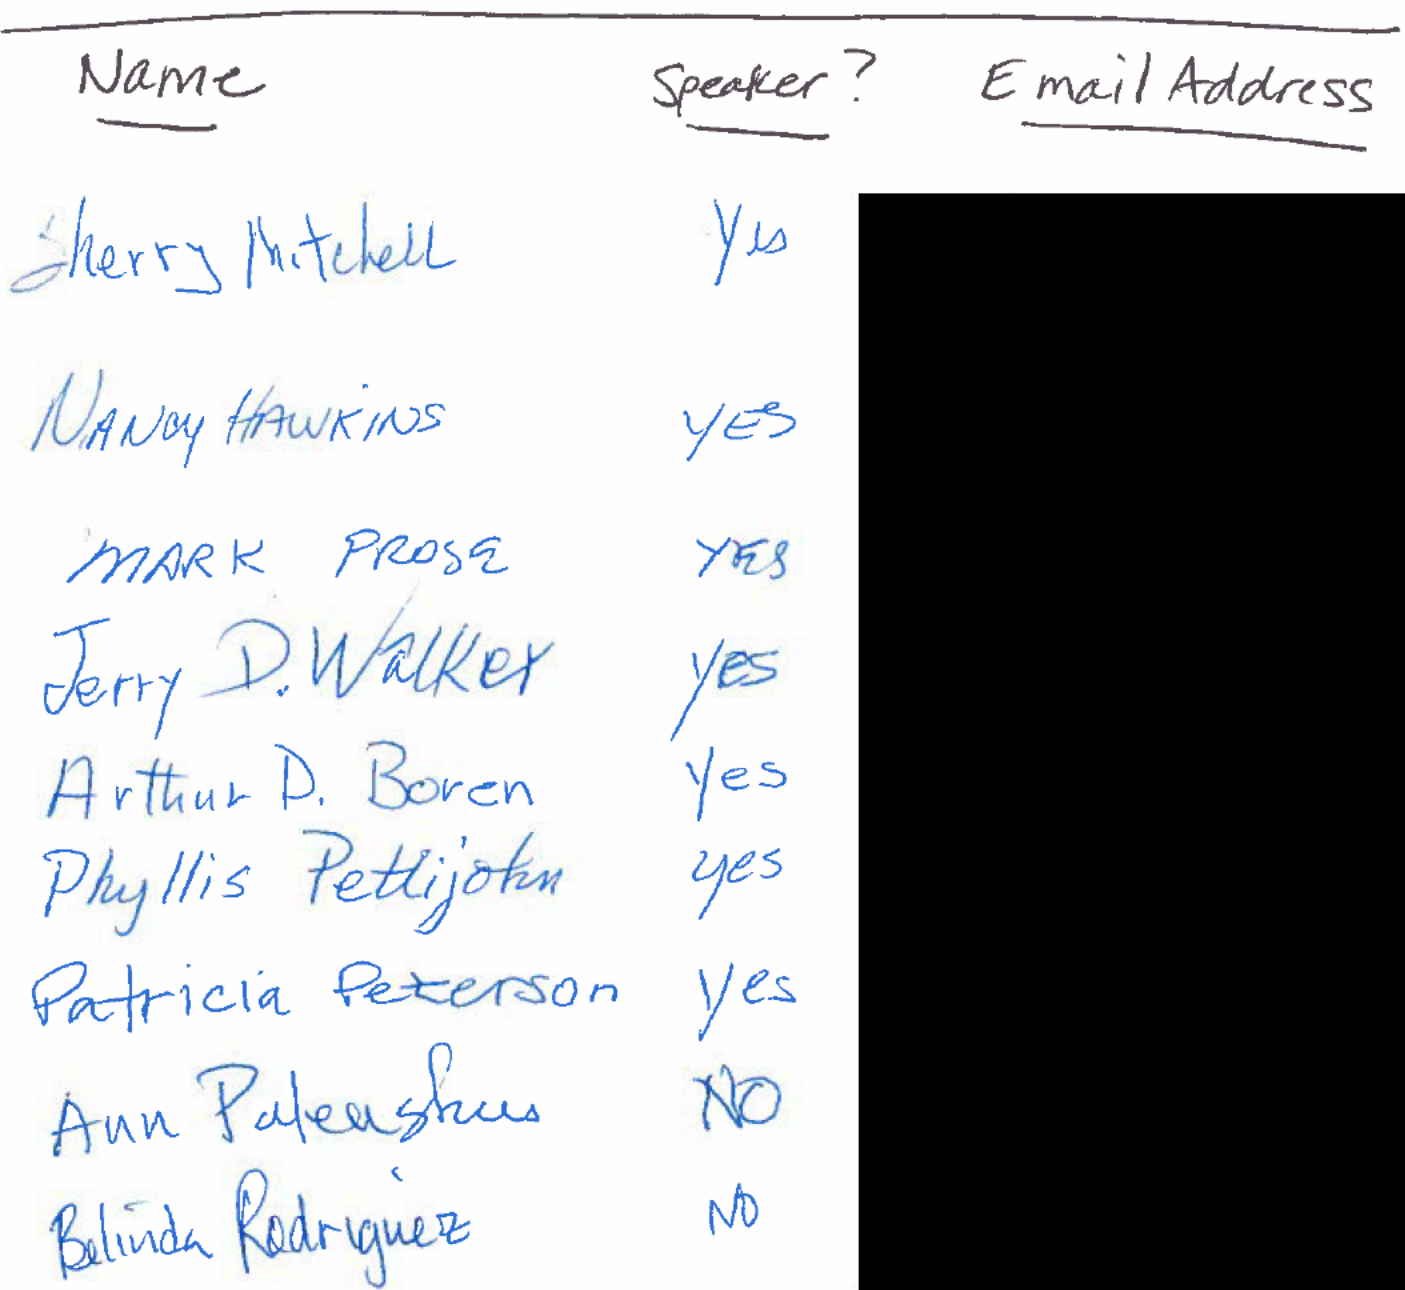 Name Speaker? Email Address
Sherry Mitchell Yes
NANCY HAWKINS YES
MARK PROSE YES
Jerry D. Walker yes
Arthur D. Boren Yes
Phyllis Pettijohn yes
Patricia Peterson Yes
Ann NO
Belinda Rodriguez NO